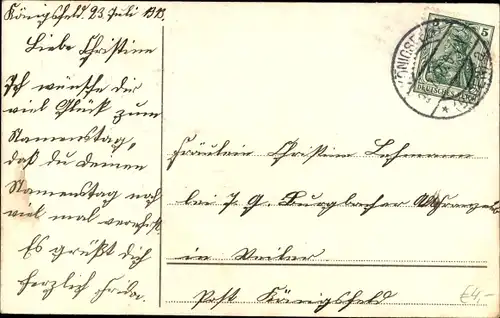 Königsfeld. 23. Juli 1913.
Liebe Christine
Ich wünsche dir
viel Glück zum
Namenstag,
daß du deinen
Namenstag noch
viel mal
Es grüßt dich
herzlich Frida.
5
KÖNIGSFELD
DEUTSCHES REICH
Fräulein Christine Lehmann
bei J. G. Burgbacher
in Weiler
Post Königsfeld
€4,-